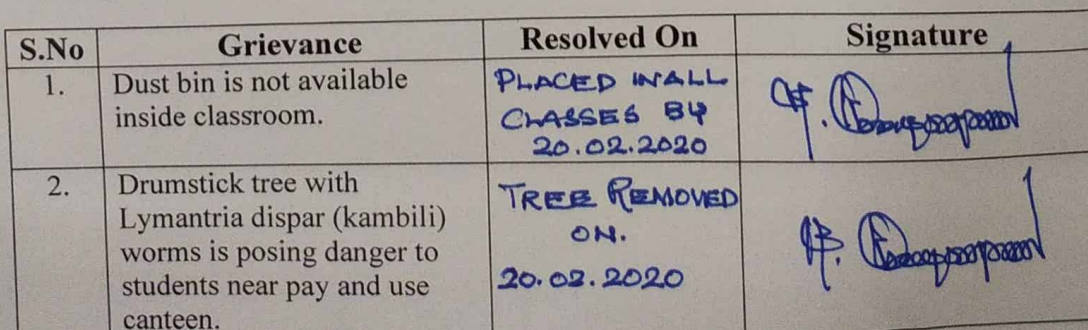 S.No Grievance Resolved On Signature
1. Dust bin is not available
inside classroom.
PLACED IN ALL
CLASSES BY
20.02.2020
2. Drumstick tree with
Lymantria dispar (kambili)
worms is posing danger to
students near pay and use
canteen.
TREE REMOVED
ON.
20.02.2020